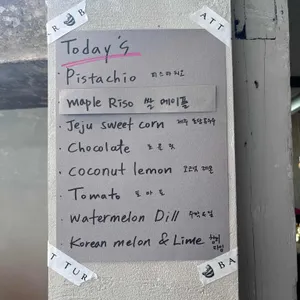 R B
ATT
Today's
· Pistachio 피스타치오
maple Riso 쌀 메이플
· Jeju sweet corn 제주 초당옥수수
· Chocolate 초콜릿
· coconut lemon 코코넛 레몬
· Tomato 토마토
· watermelon Dill 수박 & 딜
· Korean melon & Lime 참외 라임
T TUR
BA